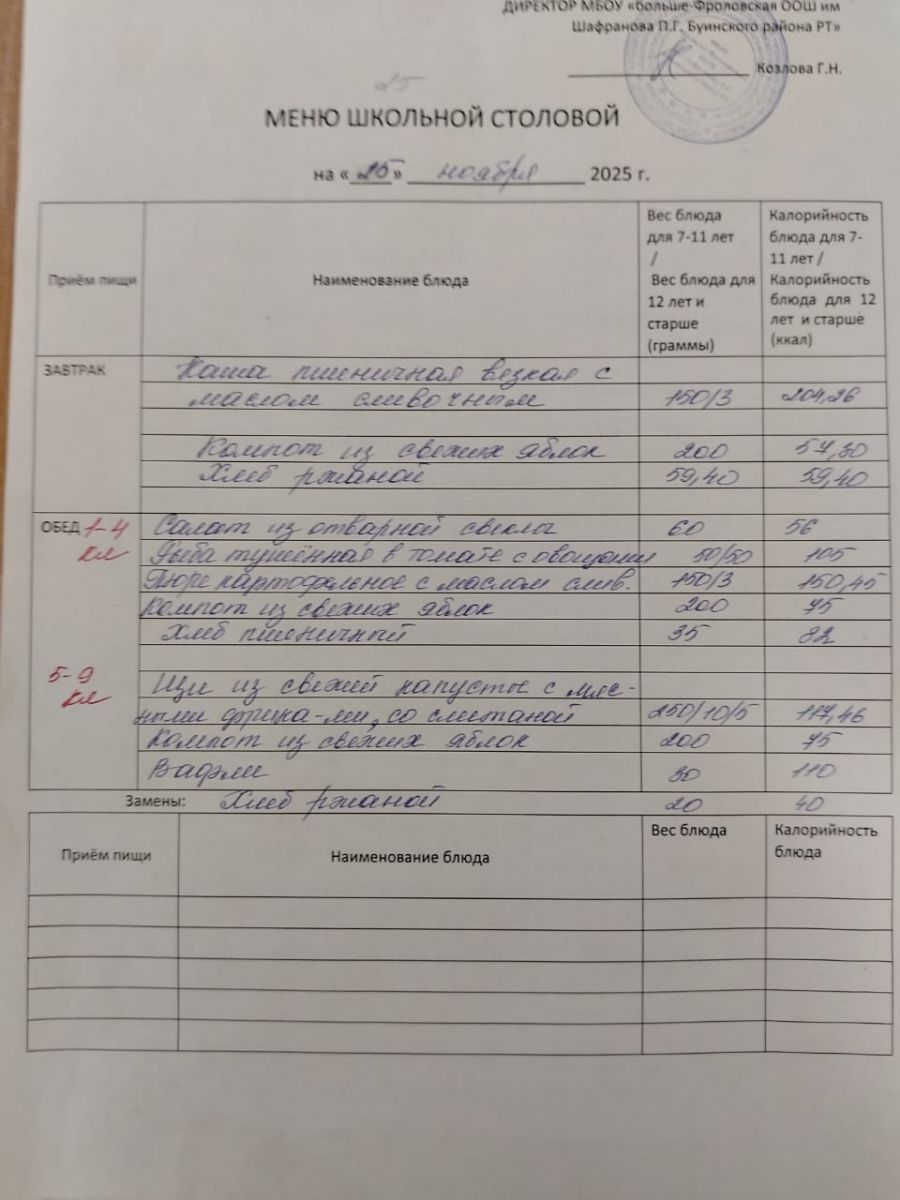 ДИРЕКТОР МБОУ «Больше-Фроловская ООШ им
Шафранова П.Г. Буинского района РТ»
Козлова Г.Н.
25
МЕНЮ ШКОЛЬНОЙ СТОЛОВОЙ
на «25» ноября 2025 г.
Приём пищи Наименование блюда Вес блюда для 7-11 лет / Вес блюда для 12 лет и старше (граммы) Калорийность блюда для 7-11 лет / Калорийность блюда для 12 лет и старше (ккал)
ЗАВТРАК Каша пшеничная вязкая с
маслом сливочным 150/3 204,26
Компот из свежих яблок 200 57,30
Хлеб ржаной 59,40 59,40
ОБЕД 1-4 Салат из отварной свеклы 60 56
кл Рыба тушённая в томате с овощами 50/50 105
Пюре картофельное с маслом слив. 150/3 150,45
Компот из свежих яблок 200 75
Хлеб пшеничный 35 82
5-9 Щи из свежий капусты с мяс-
кл ными фрика-ми, со сметаной 250/10/5 117,46
Компот из свежих яблок 200 75
Вафли 30 110
Замены: Хлеб ржаной 20 40
Приём пищи Наименование блюда Вес блюда Калорийность блюда